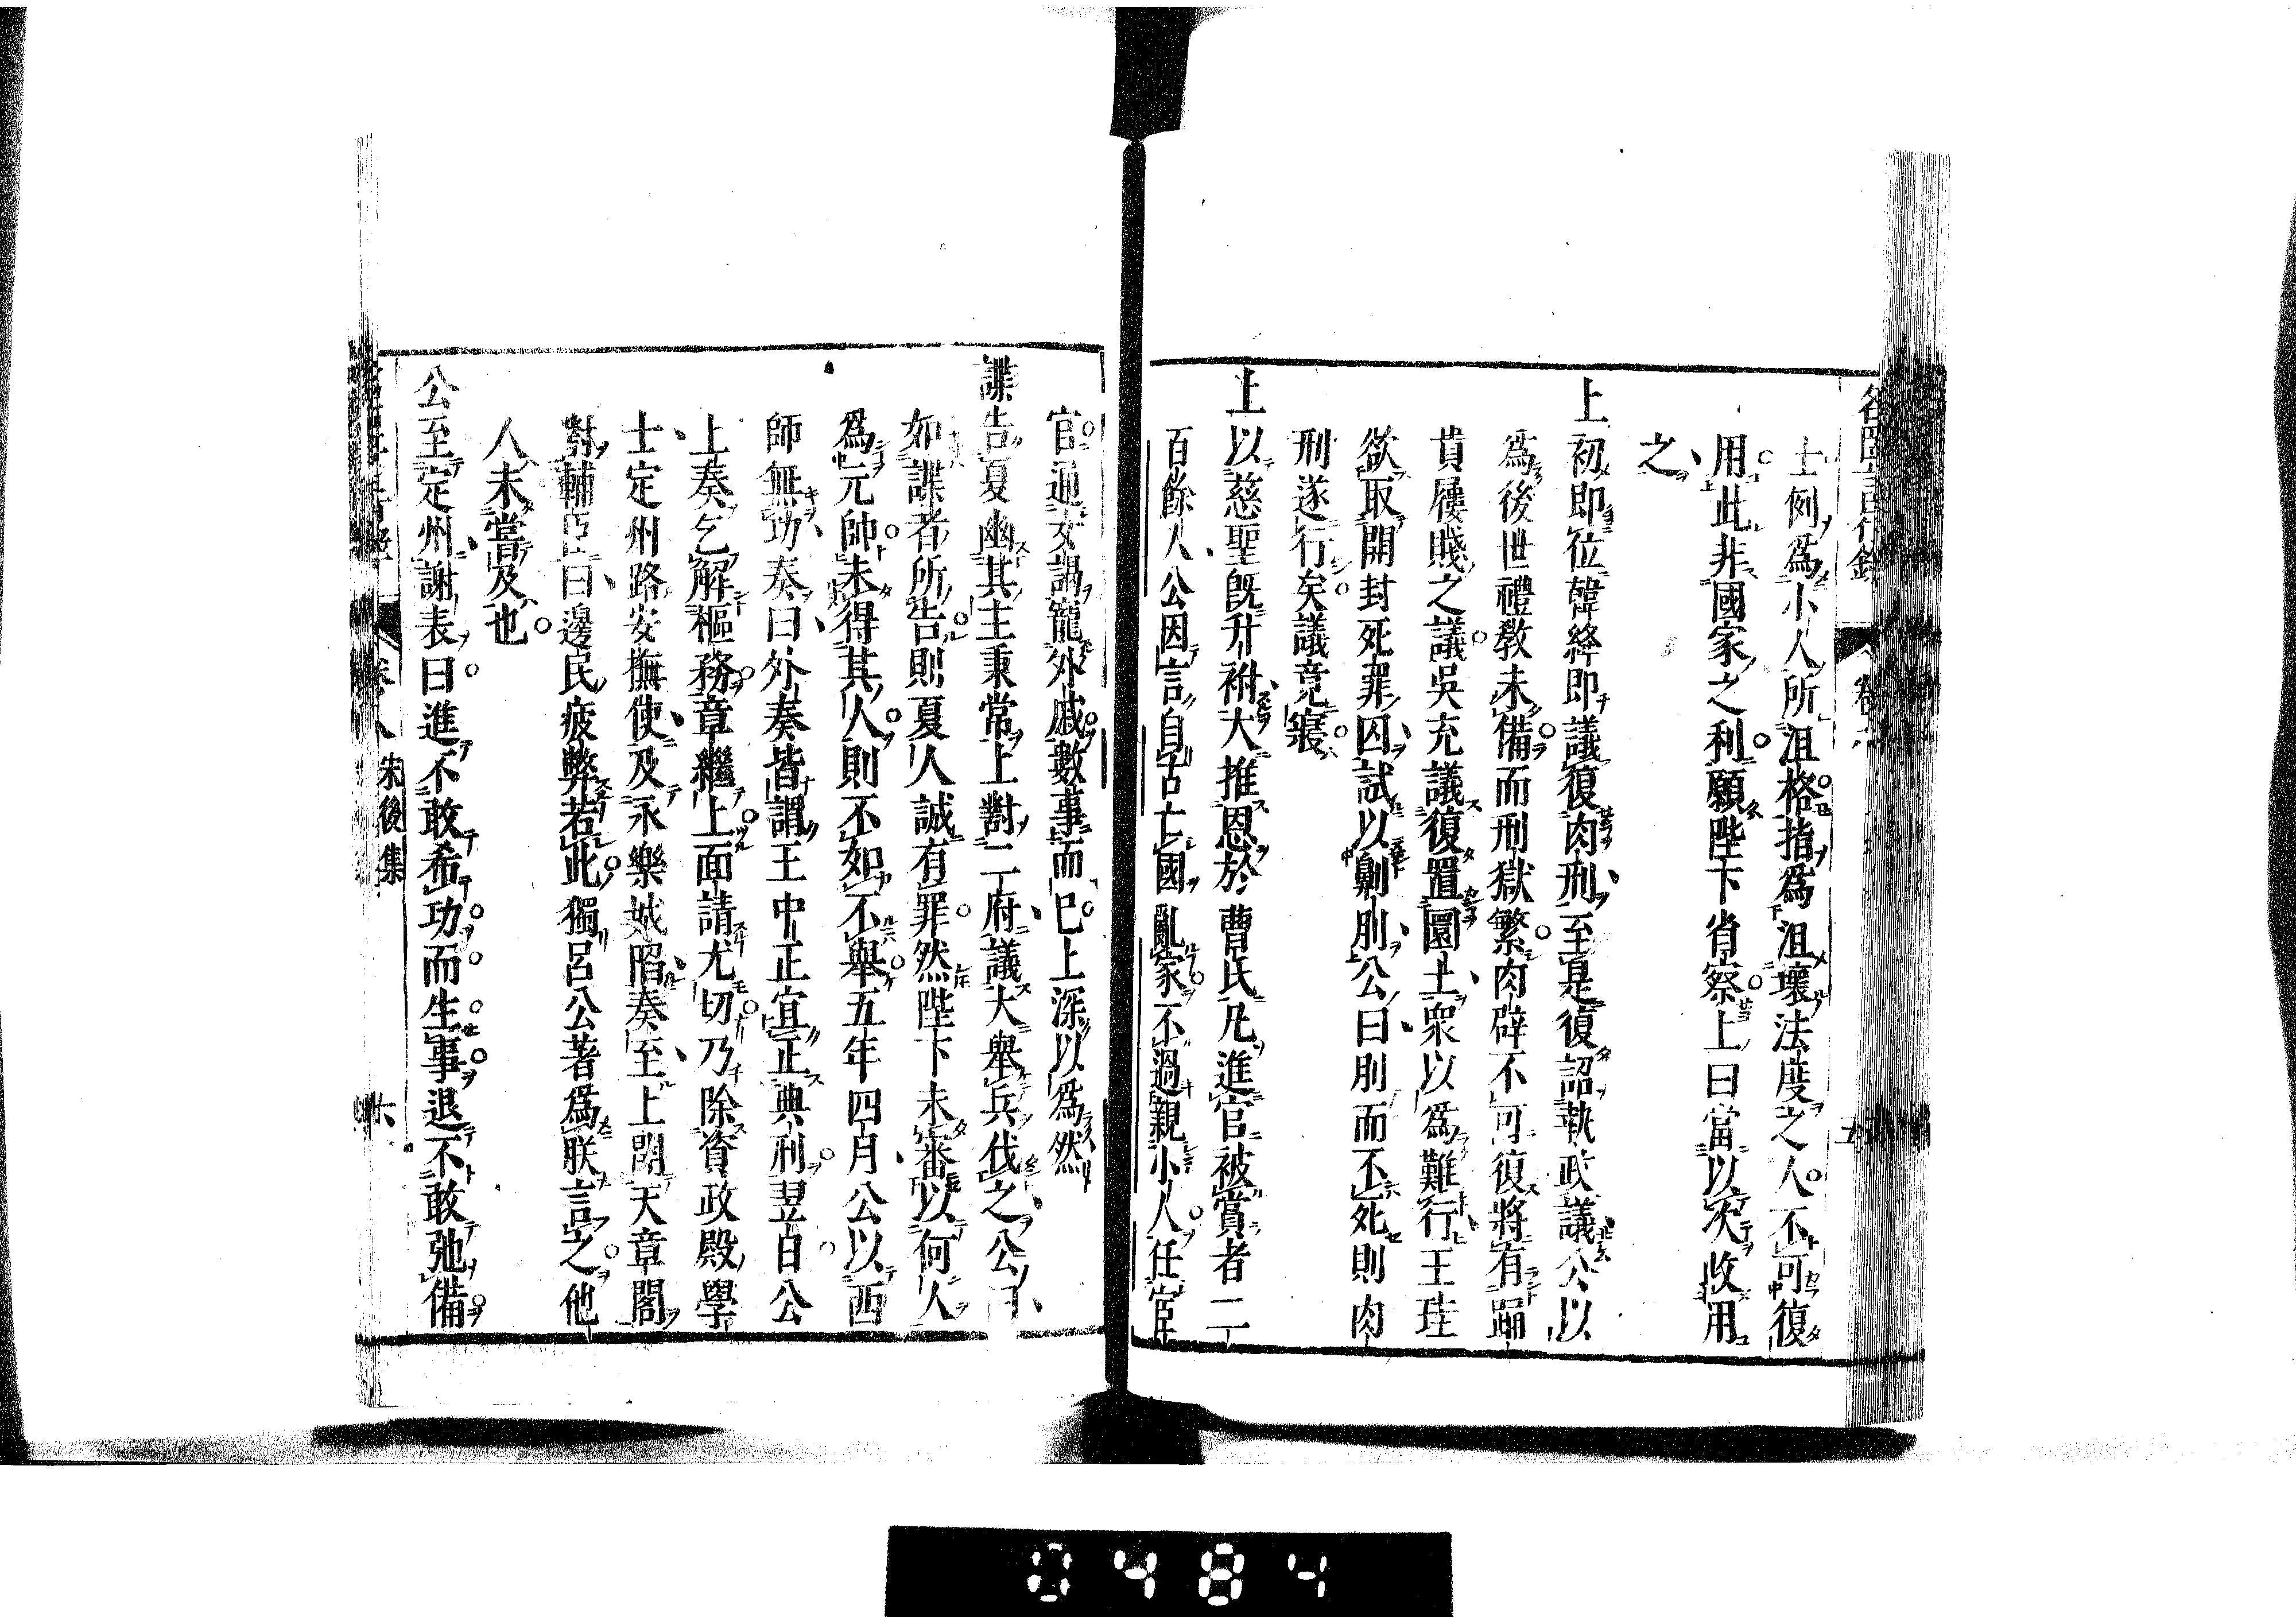 名臣言行錄
卷八
五
士例爲小人所沮格指爲沮壞法度之人不可復
用此非國家之利願陛下省察上曰當以次收用
之
上初即位韓絳即議復肉刑至是復詔執政議公以
爲後世禮教未備而刑獄繁肉辟不可復將有踊
貴屨賤之議吳充議復置圜土衆以爲難行王珪
欲取開封死罪囚試以劓刖公曰刖而不死則肉
刑遂行矣議竟寢
上以慈聖既升祔大推恩於曹氏凡進官被賞者二
百餘人公因言自古亡國亂家不過親小人任宦
官通女謁寵外戚數事而已上深以爲然
諜告夏幽其主秉常上對二府議大舉兵伐之公曰
如諜者所告則夏人誠有罪然陛下未審以何人
爲元帥未得其人則不如不舉五年四月公以西
師無功奏曰外奏皆謂王中正宜正典刑翌日公
上奏乞解樞務章繼上面請尤切乃除資政殿學
士定州路安撫使及永樂城陷奏至上開天章閣
對輔臣曰邊民疲弊若此獨呂公著爲朕言之他
人未嘗及也
公至定州謝表曰進不敢希功而生事退不敢弛備
卷八
宋後集
六
0484